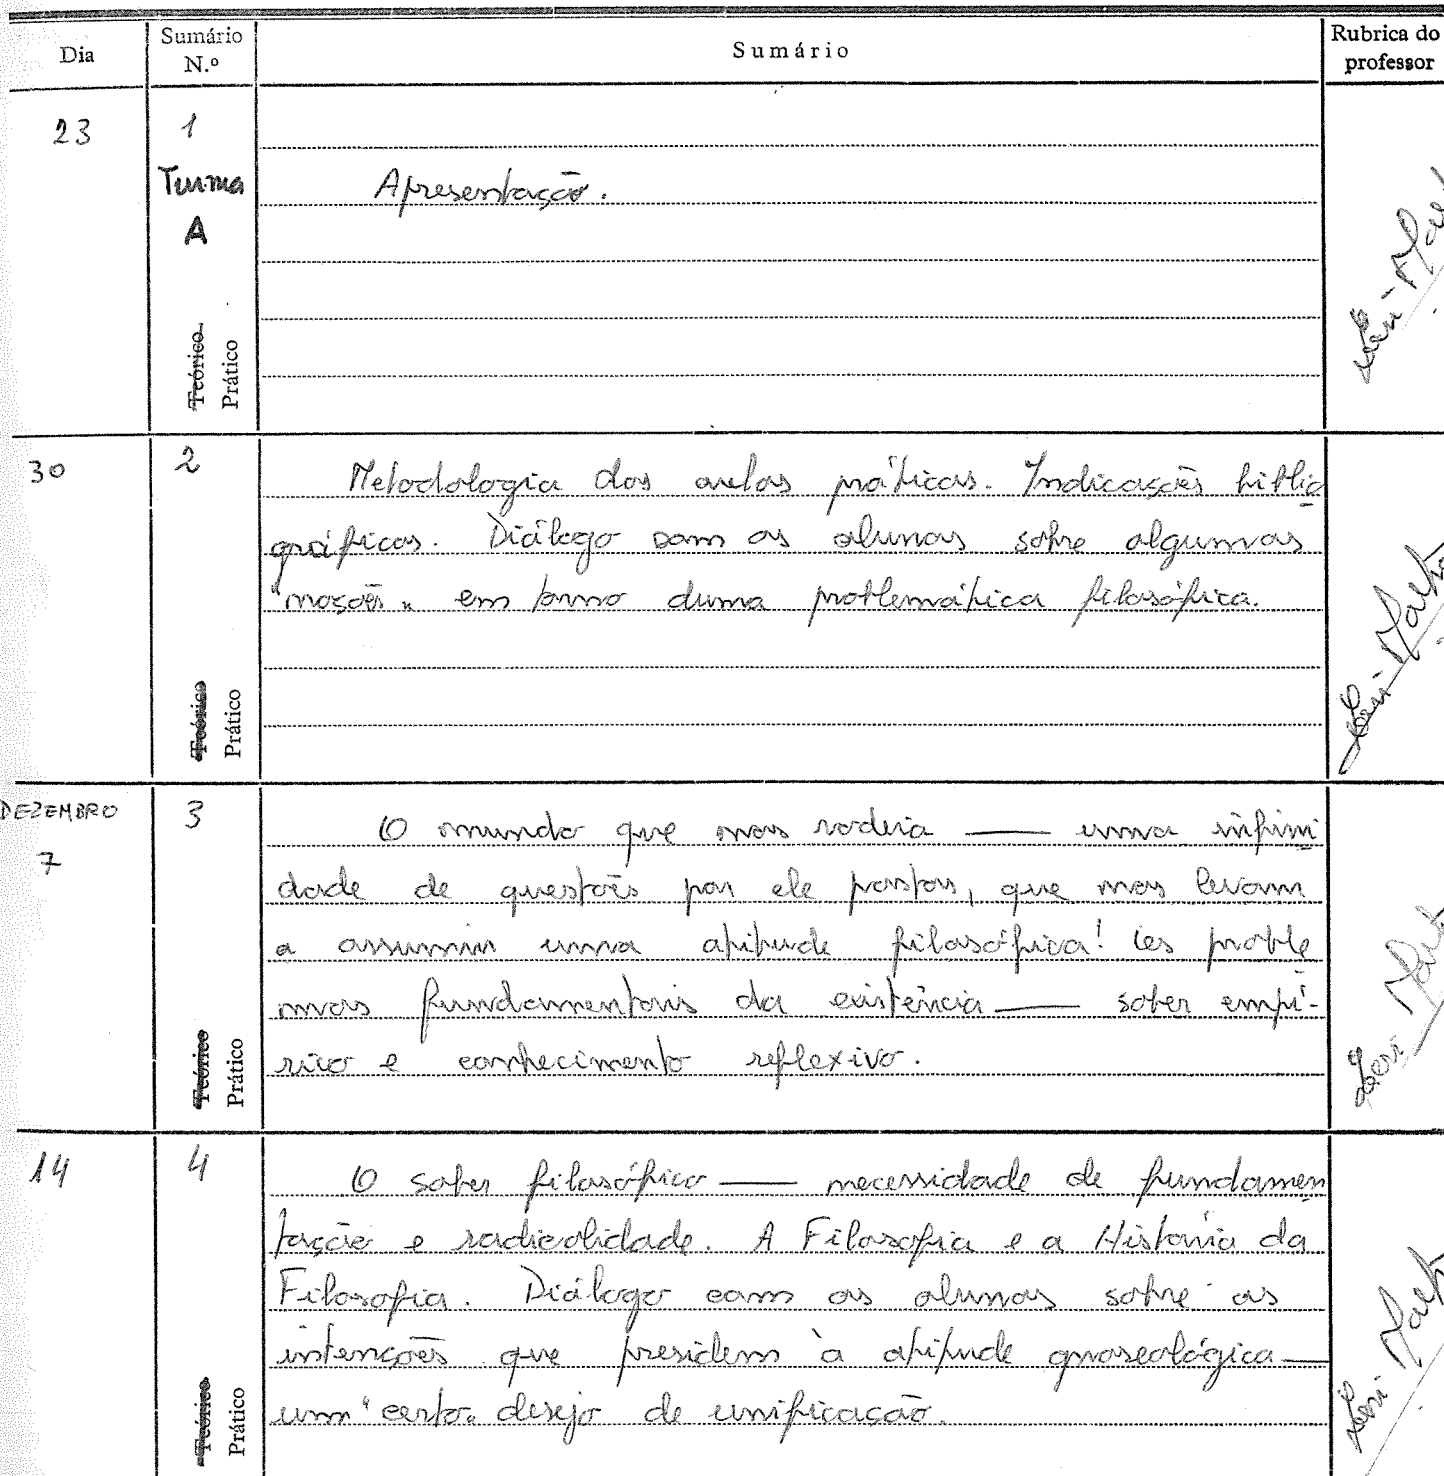 Dia
Sumário
N.º
Sumário
Rubrica do
professor
23
1
Turma
A
Teórico
Prático
Apresentação.
30
2
Teórico
Prático
Metodologia das aulas práticas. Indicações biblio
gráficas. Diálogo com os alunos sobre algumas
"noções" em torno duma problemática filosófica.
DEZEMBRO
7
3
Teórico
Prático
O mundo que nos rodeia — uma infini
dade de questões por ele postas, que nos levam
a assumir uma atitude filosófica! Os proble
mas fundamentais da existência — saber empí-
rico e conhecimento reflexivo.
14
4
Teórico
Prático
O saber filosófico — necessidade de fundamen
tação e radicalidade. A Filosofia e a História da
Filosofia. Diálogo com os alunos sobre as
intenções que presidem à atitude gnoseológica —
um "certo" desejo de unificação.